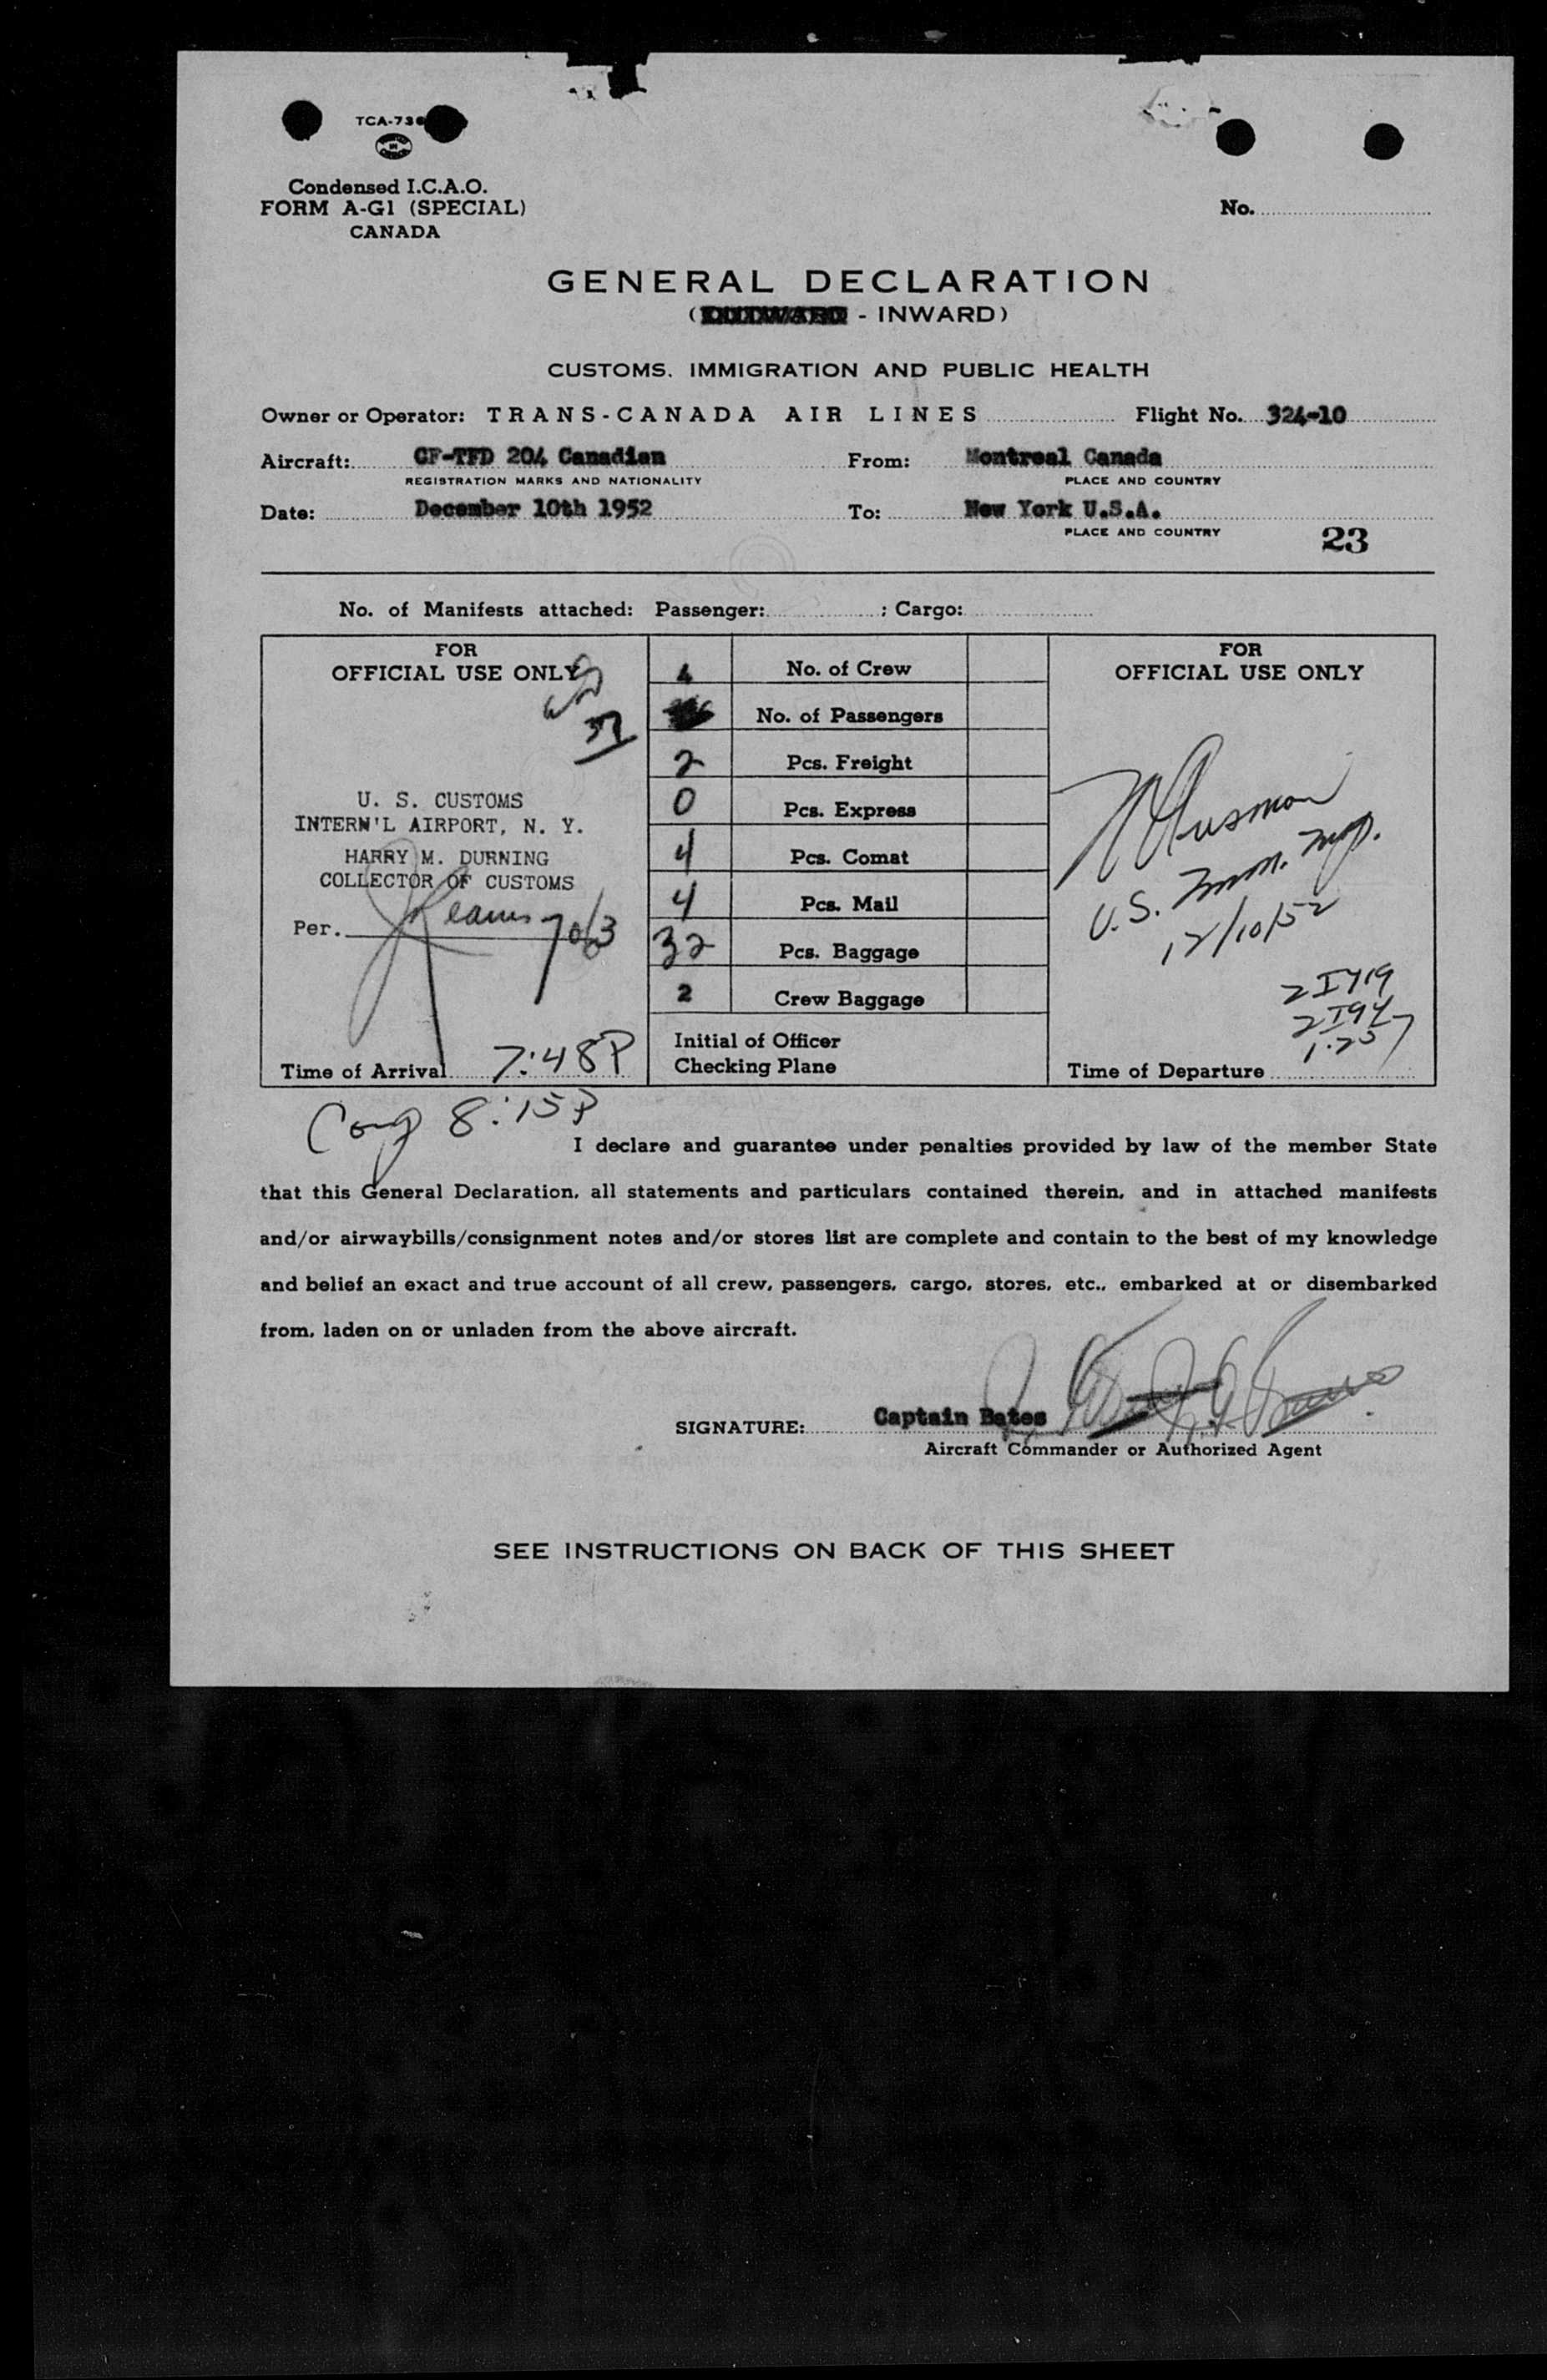 TCA-73
Condensed I.C.A.O.
FORM A-G1 (SPECIAL)
CANADA
No.
GENERAL DECLARATION
( - INWARD)
CUSTOMS, IMMIGRATION AND PUBLIC HEALTH
Owner or Operator: TRANS-CANADA AIR LINES Flight No. 324-10
Aircraft: CF-TFD 204 Canadian From: Montreal Canada
REGISTRATION MARKS AND NATIONALITY PLACE AND COUNTRY
Date: December 10th 1952 To: New York U.S.A.
PLACE AND COUNTRY
23
No. of Manifests attached: Passenger: ; Cargo:
FOR
OFFICIAL USE ONLY
37
U. S. CUSTOMS
INTERN'L AIRPORT, N. Y.
HARRY M. DURNING
COLLECTOR OF CUSTOMS
Per.
Time of Arrival 7:48P
4 No. of Crew
No. of Passengers
2 Pcs. Freight
0 Pcs. Express
4 Pcs. Comat
4 Pcs. Mail
32 Pcs. Baggage
2 Crew Baggage
Initial of Officer
Checking Plane
FOR
OFFICIAL USE ONLY
U.S. Imm. Insp.
12/10/52
Time of Departure
8:15P
I declare and guarantee under penalties provided by law of the member State
that this General Declaration, all statements and particulars contained therein, and in attached manifests
and/or airwaybills/consignment notes and/or stores list are complete and contain to the best of my knowledge
and belief an exact and true account of all crew, passengers, cargo, stores, etc., embarked at or disembarked
from, laden on or unladen from the above aircraft.
SIGNATURE: Captain Bates
Aircraft Commander or Authorized Agent
SEE INSTRUCTIONS ON BACK OF THIS SHEET